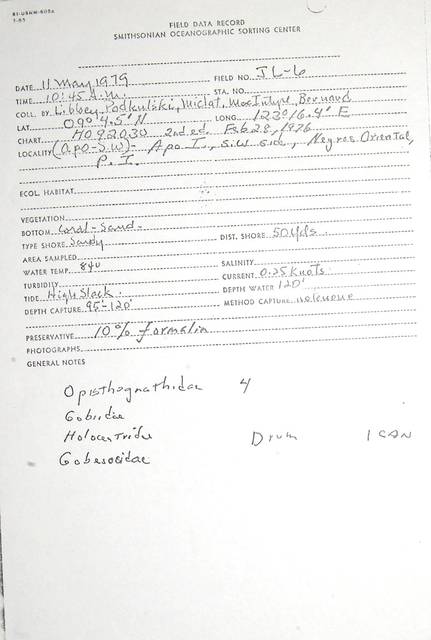 SI-USNM-608a
7-65
FIELD DATA RECORD
SMITHSONIAN OCEANOGRAPHIC SORTING CENTER
DATE 11 May 1979 FIELD NO. JL-6
TIME 10:45 A.M. STA. NO.
COLL. BY Libbey, Podkulski, Miclat, MacIntyre, Bernard
LAT. 09°4.5'N LONG. 123°16.4' E
CHART HO 92030 2nd ed. Feb 28, 1976
LOCALITY (Apo-S.W.)- Apo I., S.W. side, Negros Oriental,
P. I.
ECOL. HABITAT
VEGETATION
BOTTOM Coral-Sand
TYPE SHORE Sandy DIST. SHORE 50 yds.
AREA SAMPLED
WATER TEMP. 84° SALINITY
TURBIDITY CURRENT 0.25 Knots
TIDE High Slack DEPTH WATER 120'
DEPTH CAPTURE 95'-120' METHOD CAPTURE rotenone
PRESERVATIVE 10% formalin
PHOTOGRAPHS
GENERAL NOTES
Opisthognathidae 4
Gobiidae
Holocentridae Drum 1 CAN
Gobesocidae